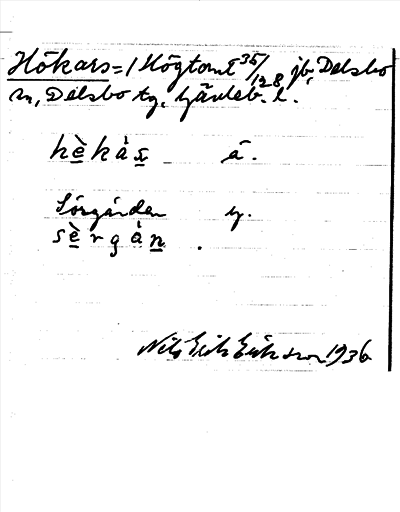 Hökars = 1 Högtomt 35/128 jb, Delsbo
sn, Delsbo tg, Gävleb. l.
hèkàs̱ ä.
Sörgården y.
sèrgàṉ.
Nils Erik Eriksson 1936